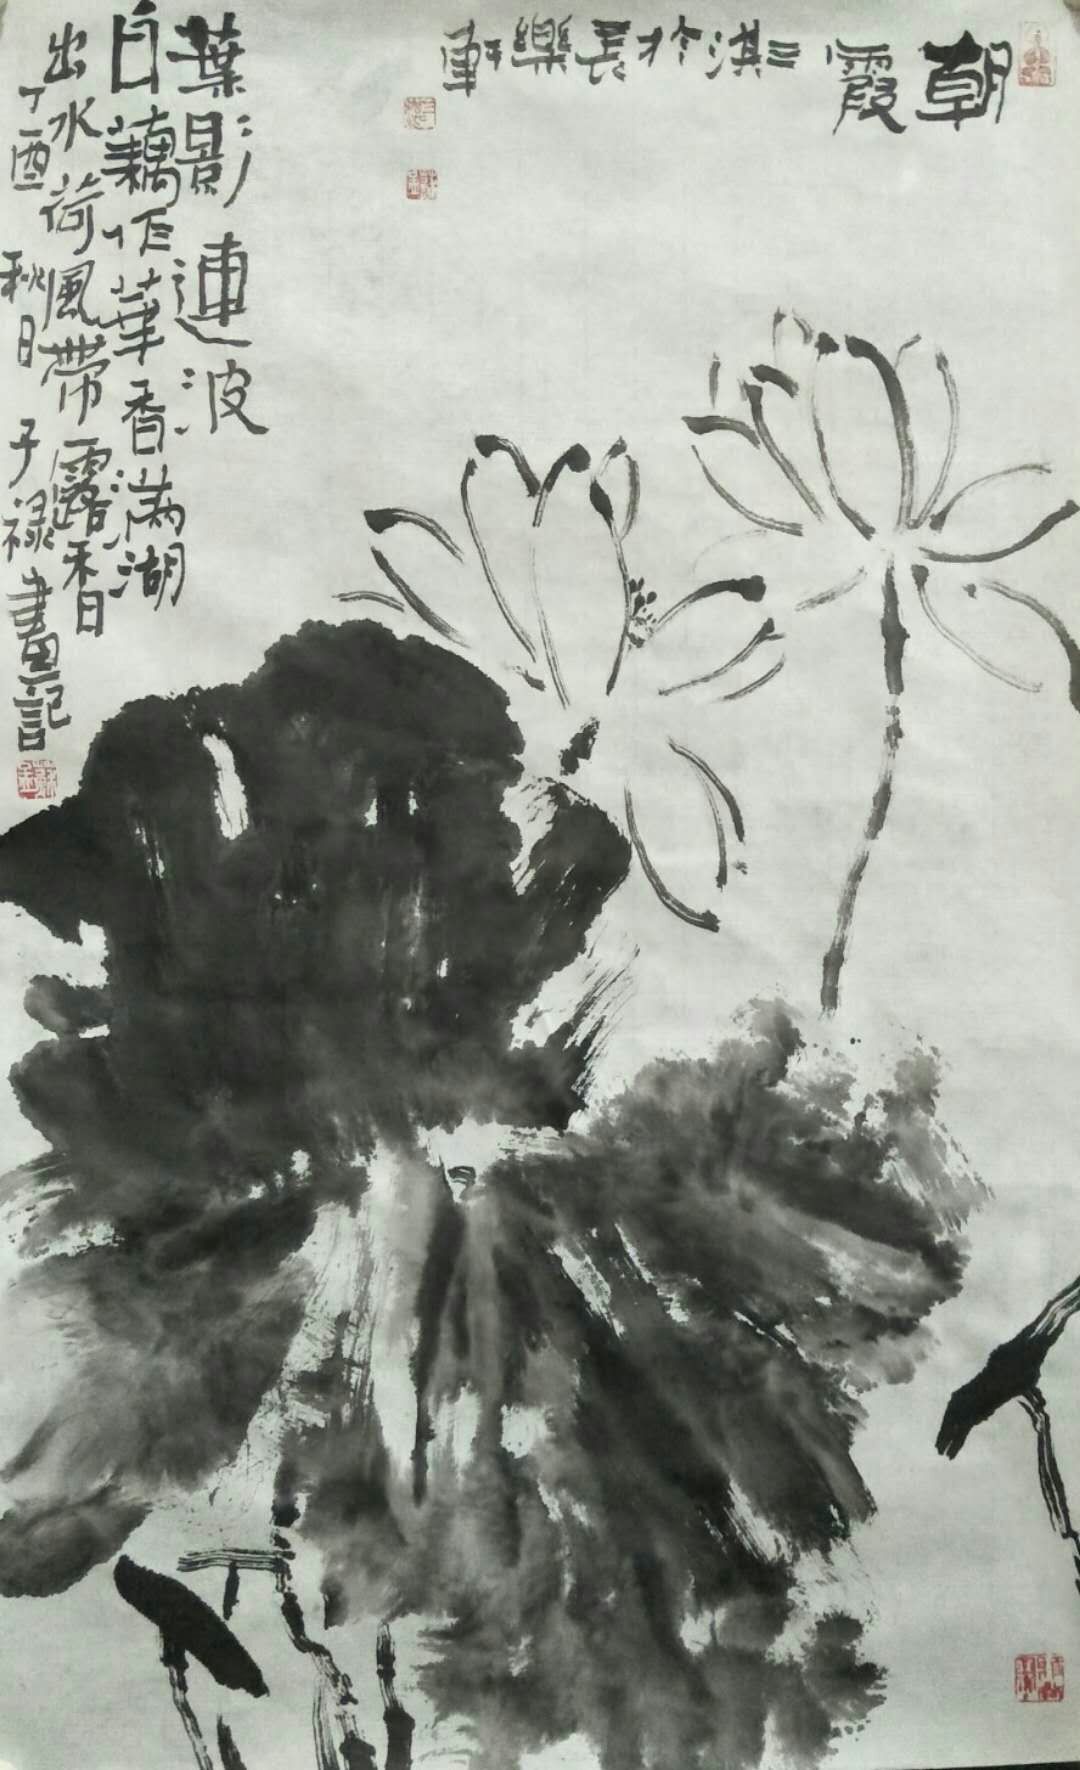 朝霞
三淇於長樂軒
葉影連波
白藕作華香满湖
出水荷風帶露香
丁酉秋日子禄畫記